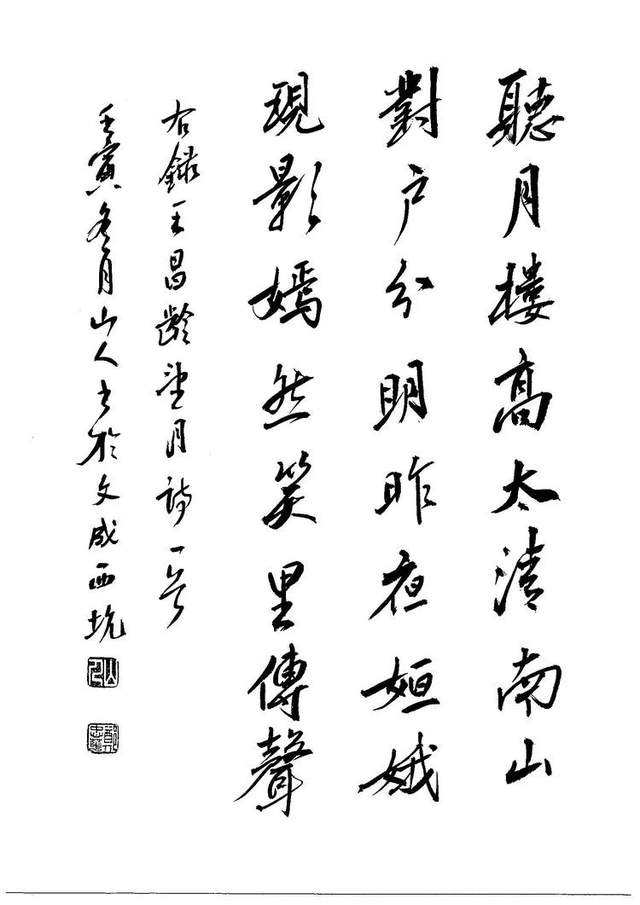 聽月樓高太清南山
對户分明昨夜姮娥
現影嫣然笑里傳聲
右錄王昌齡望月詩一首
壬寅冬月山人書於文成西坑
山人